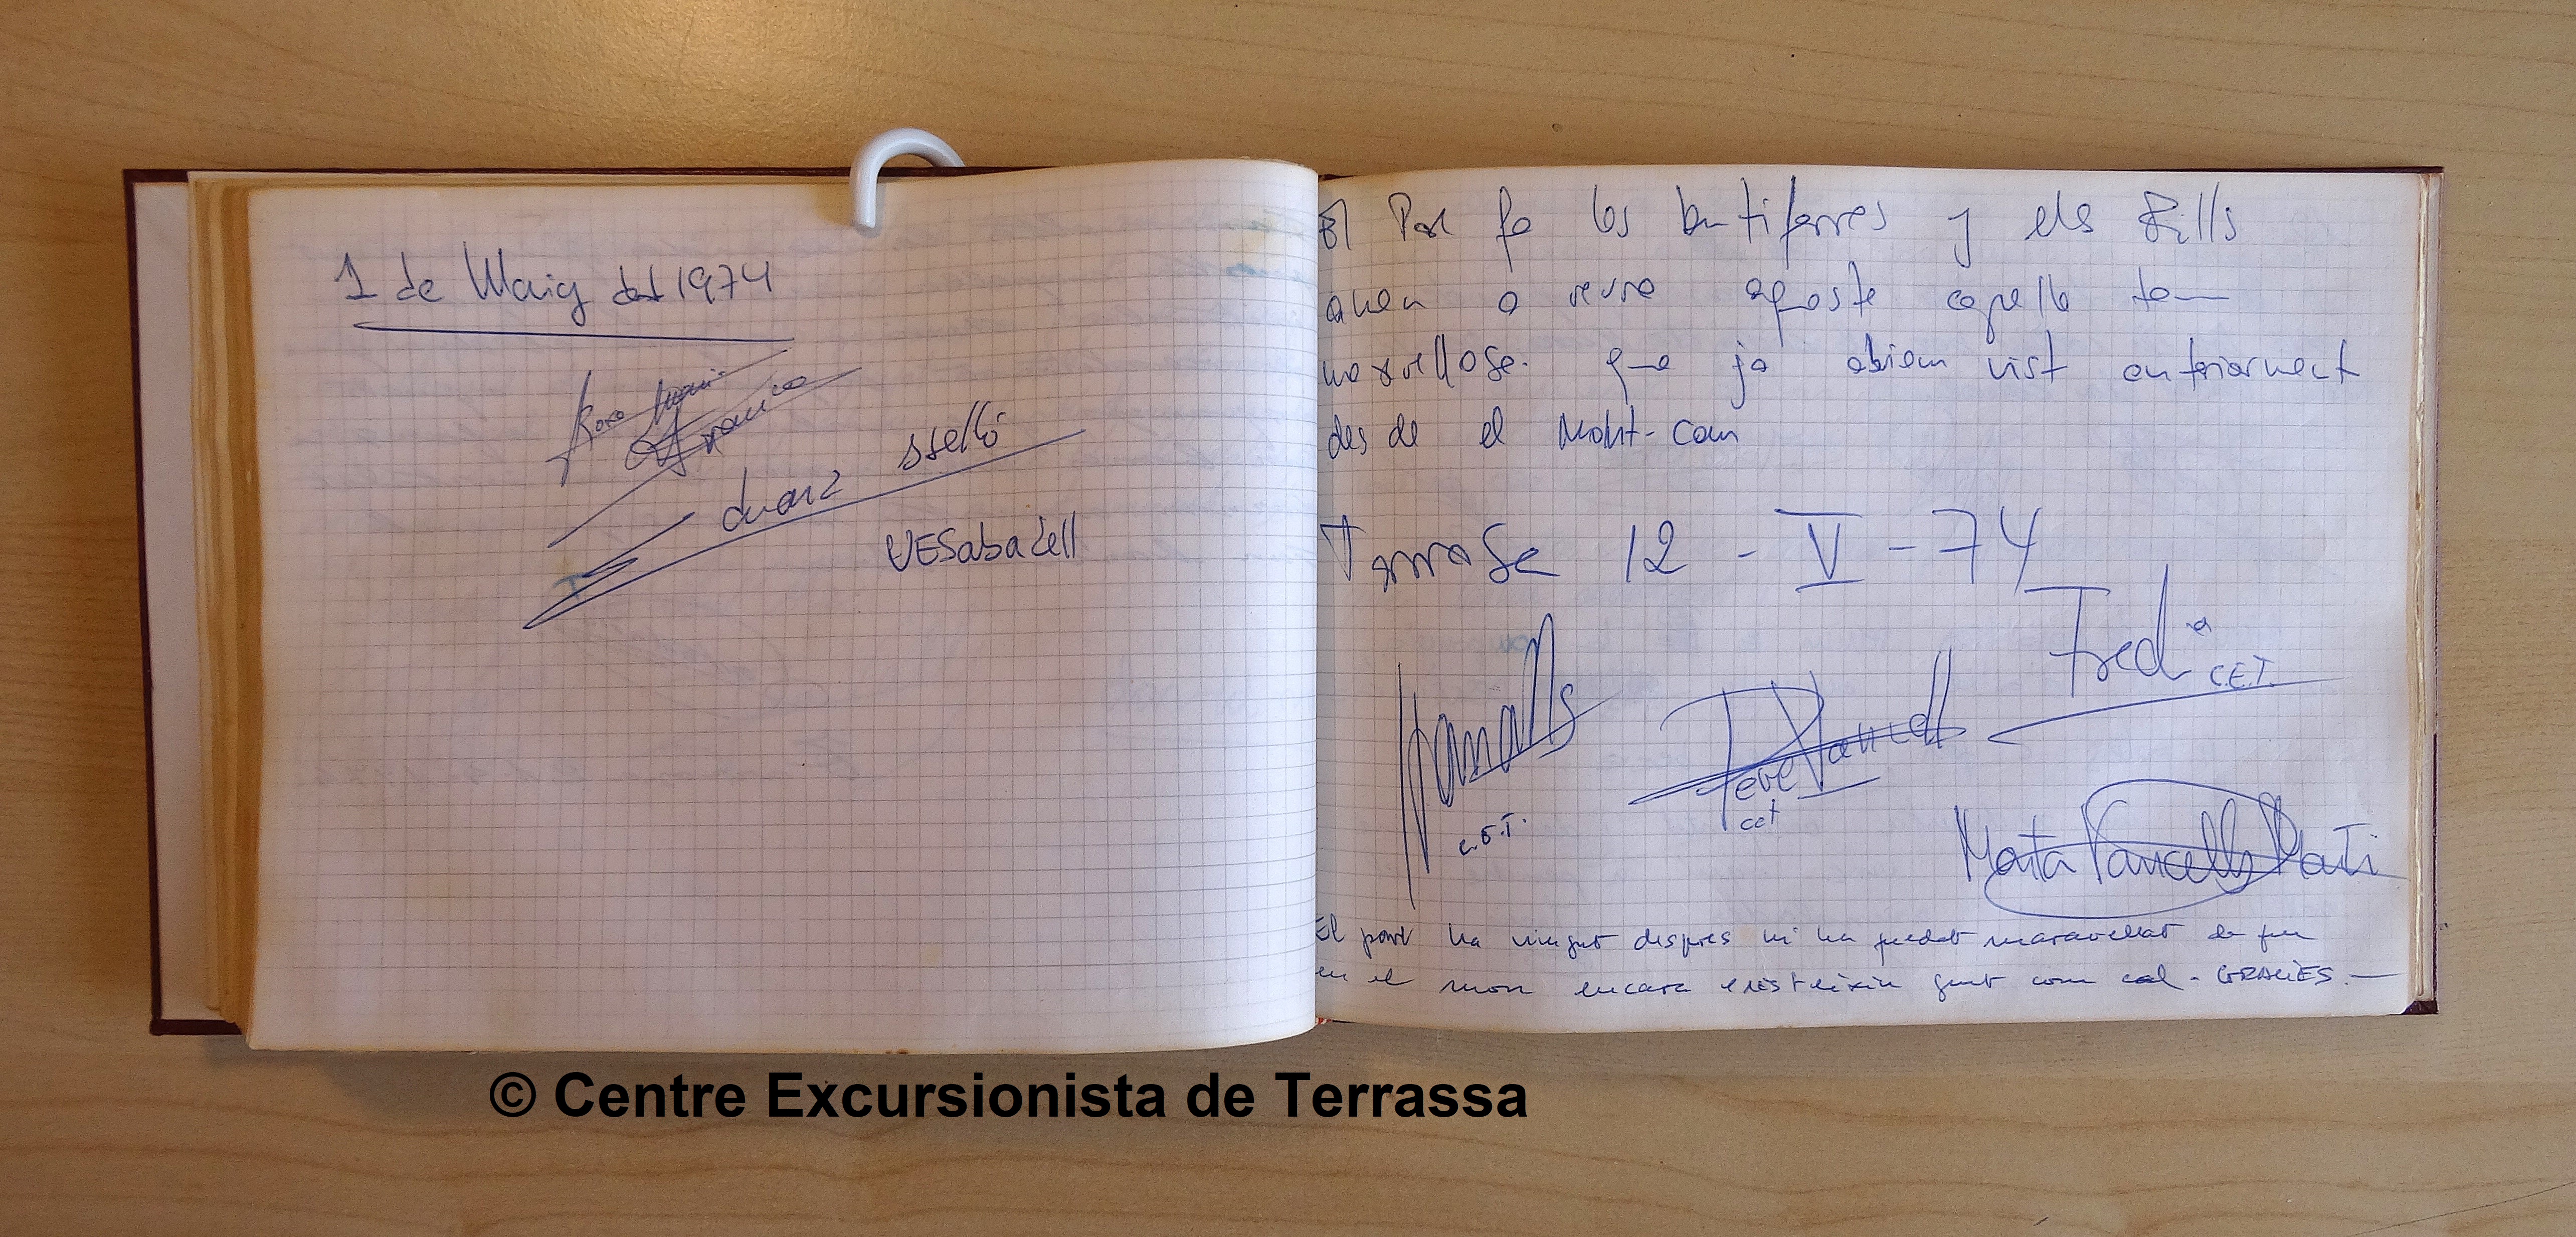 1 de Maig del 1974
Rosa Maria
Franico
duarz sselló
UESabadell
El Pare fa les butifarres y els Fills
anem a veure aquesta capella tan
marvellosa. que ja abiem vist anteriorment
des de el Mont-cau
Terrasa 12 - V - 74
Fred C.E.T.
C.E.T.
Pere Vancell
cet
Marta Vancells Martí
El pare ha vingut despres hi ha quedat maravellat de que
en el mon encara existeixin gent com cal - GRACIES. -
© Centre Excursionista de Terrassa